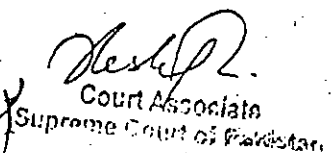 Court Associate
Supreme Court of Pakistan